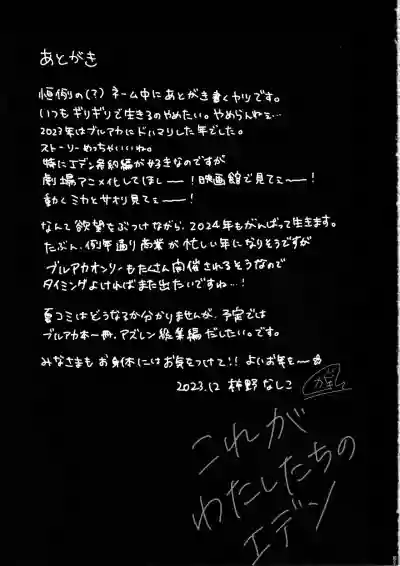 あとがき
恒例の(?) ネーム中にあとがき書くヤツです。
いつもギリギリで生きるのやめたい。やめらんねぇ…
2023年はブルアカにドハマりした年でした。
ストーリーめっちゃいいね。
特にエデン条約編が好きなのですが
劇場アニメ化してほしー!映画館で見てぇー!
動くミカとサオリ見てぇー!
なんて欲望をぶつけながら、2024年もがんばって生きます。
たぶん、例年通り商業が忙しい年になりそうですが
ブルアカオンリーもたくさん開催されるそうなので
タイミングよければまた出たいですね…!
夏コミはどうなるか分かりませんが、予定では
ブルアカ本一冊、アズレン総集編だしたい。です。
みなさまもお身体にはお気をつけて!! よいお年を〜
2023.12 柿野なしこ
これが
わたしたちの
エデン